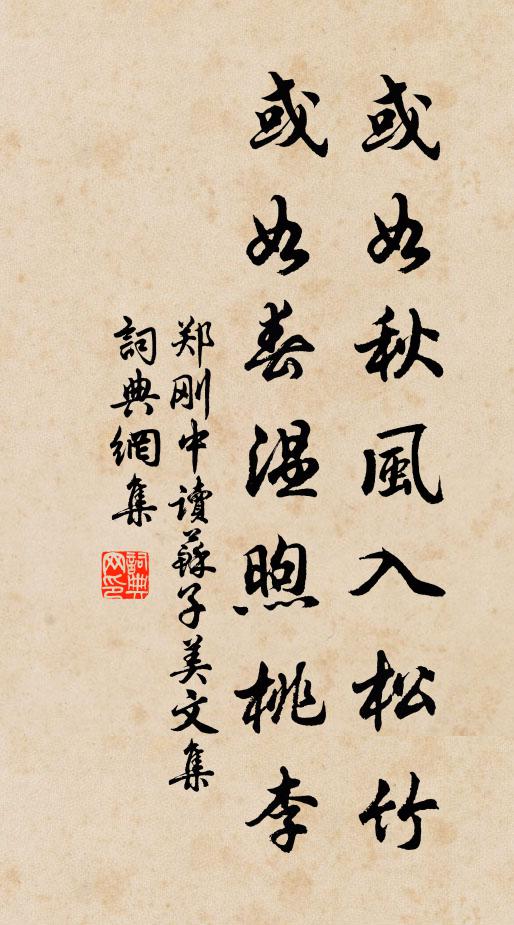 或如秋風入松竹
或如春温煦桃李
郑刚中讀蘇子美文集
詞典網集
詞典网印